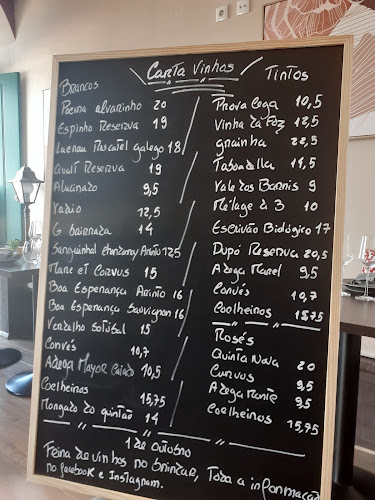 Carta Vinhos
Brancos
Poema alvarinho 20
Espinho Reserva 19
galego 18
Reserva 19
9,5
Vadio 12,5
G bairrada 14
Arinto 12,5
Mare et Corvus 15
Boa Esperança Arinto 16
Boa Esperança Sauvignon 16
Verdelho 15
Convés 10,7
Adega Mayor Caiado 10,5
Coelheiros 15,75
Mongado do quintão 14
Tintos
Prova Cega 10,5
Vinha da Foz 12,5
grainha 22,5
Taboadella 14,5
Vale dos Barris 9
Mélage à 3 10
Escrivão Biológico 17
Dupó Reserva 20,5
Adega 9,5
Convés 10,7
Coelheiros 15,75
Rosés
Quinta Nova 20
Curvus 9,5
Adega 9,5
Coelheiros 15,75
1 de Outubro
Feira do vinhos no Brincar, Toda a informação
no facebook e Instagram.